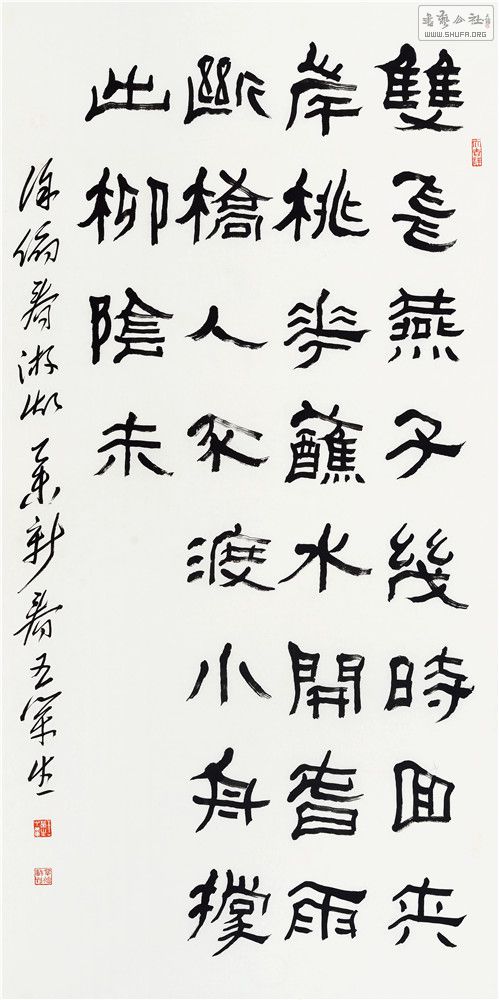 雙飛燕子幾時回夾
岸桃花蘸水開春雨
斷橋人不渡小舟撐
出柳陰未
徐俯春游湖 新春
書藝公社
WWW.SHUFA.ORG